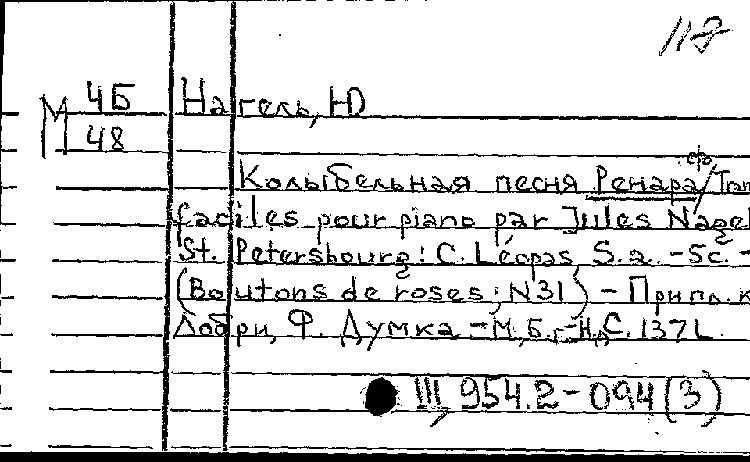 117
М 4Б Нагель, Ю
48
Колыбельная песня Ренара / Tran
faciles pour piano par Jules Nagel
St. Petersbourg: C. Léopas S.a. - 5c -
(Boutons de roses; N31) - Припл. к
Лобри, Ф. Думка - М, Б.г. - Н.С. 137 L.
III, 954.2 - 094 (3)